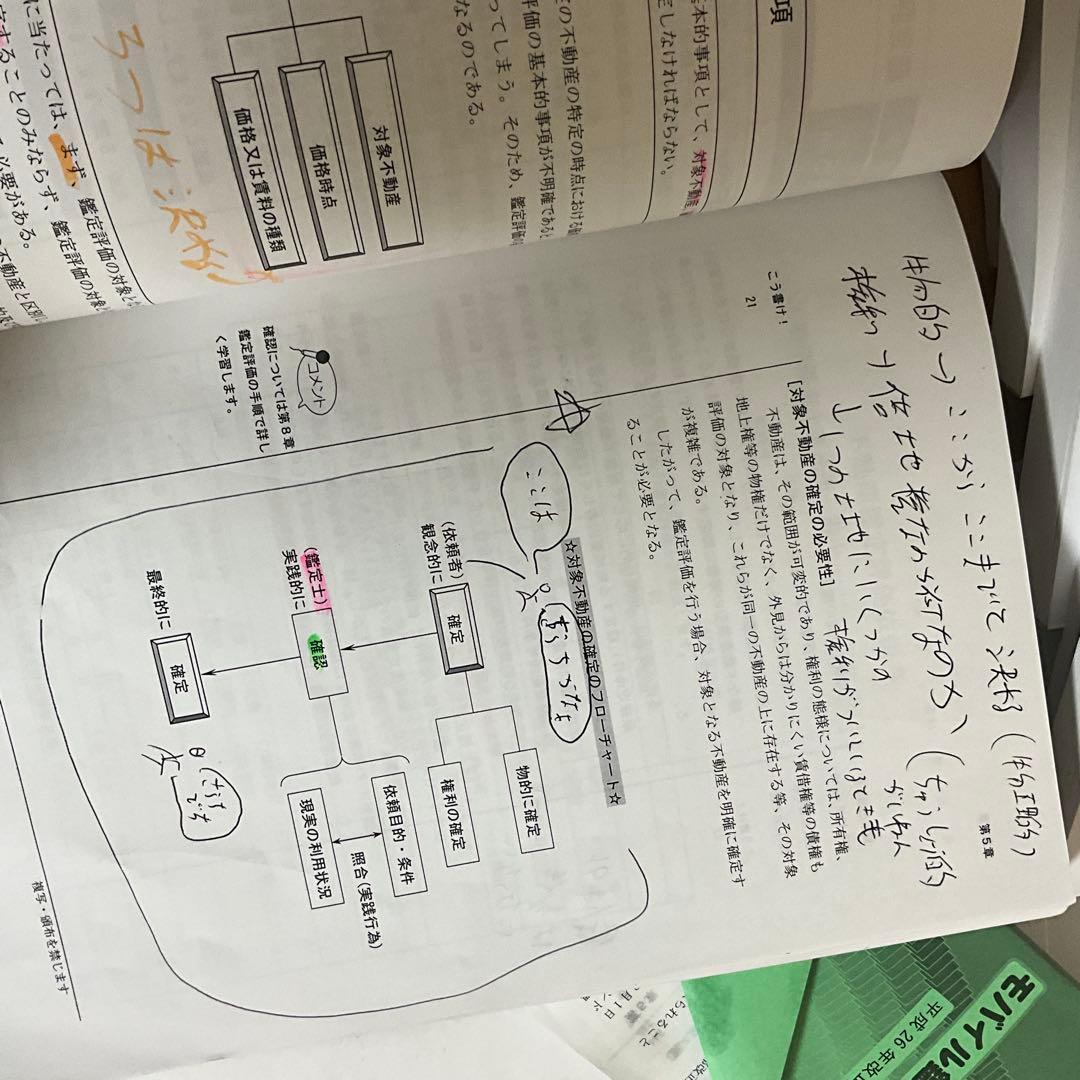 項
基本的事項として、対象不動産
定しなければならない。
の不動産の特定の時点における
評価の基本的事項が不明確であると
ってしまう。そのため、鑑定評価
なるのである。
対象不動産
価格時点
価格又は賃料の種類
3つは決める
に当たっては、まず、鑑定評価の対象と
することのみならず、鑑定評価の対象
必要がある。
不動産と区別
第5章
物的→ここからここまでで決める(物理的)
権利→借地権なのか何なのか
↓1つの土地にいくつかの
権利がついてるときも
こう書け!
21
[対象不動産の確定の必要性]
不動産は、その範囲が可変的であり、権利の態様については、所有権、
地上権等の物権だけでなく、外見からは分かりにくい賃借権等の債権も
評価の対象となり、これらが同一の不動産の上に存在する等、その対象
が複雑である。
したがって、鑑定評価を行う場合、対象となる不動産を明確に確定す
ることが必要となる。
☆対象不動産の確定のフローチャート☆
ここは
(依頼者)
観念的に
確定
物的に確定
権利の確定
(鑑定士)
実践的に
確認
依頼目的・条件
照合(実践行為)
現実の利用状況
最終的に
確定
コメント
確認については第8章
鑑定評価の手順で詳し
く学習します。
複写・頒布を禁じます
モバイル
平成26年改正